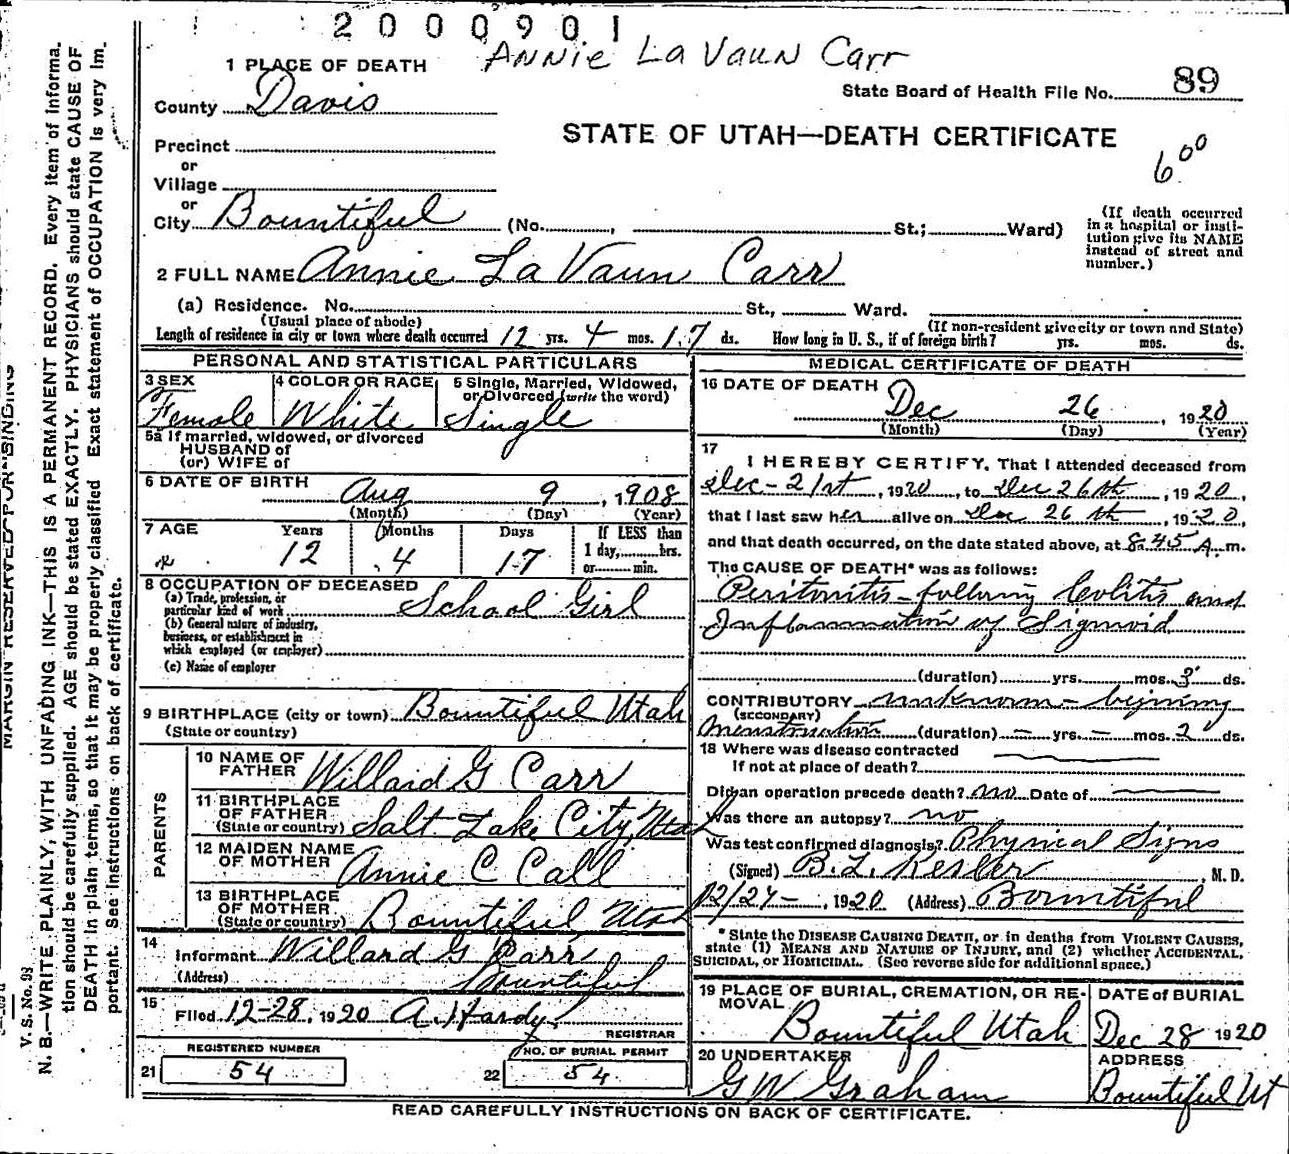 2000901
ANNIE La VAUN Carr
1 PLACE OF DEATH
County Davis
State Board of Health File No. 89
STATE OF UTAH—DEATH CERTIFICATE
6 00
Precinct
or
Village
or
City Bountiful (No. , St.; Ward)
(If death occurred in a hospital or institution give its NAME instead of street and number.)
2 FULL NAME Annie La Vaun Carr
(a) Residence. No. St., Ward.
(Usual place of abode) (If non-resident give city or town and State)
Length of residence in city or town where death occurred 12 yrs. 4 mos. 17 ds. How long in U. S., if of foreign birth? yrs. mos. ds.
PERSONAL AND STATISTICAL PARTICULARS
3 SEX Female
4 COLOR OR RACE White
5 Single, Married, Widowed, or Divorced (write the word) Single
5a If married, widowed, or divorced
HUSBAND of
(or) WIFE of
6 DATE OF BIRTH Aug 9, 1908
(Month) (Day) (Year)
7 AGE Years Months Days If LESS than
12 4 17 1 day, hrs.
or min.
8 OCCUPATION OF DECEASED
(a) Trade, profession, or
particular kind of work School Girl
(b) General nature of industry,
business, or establishment in
which employed (or employer)
(c) Name of employer
9 BIRTHPLACE (city or town) Bountiful Utah
(State or country)
PARENTS
10 NAME OF FATHER Willard G Carr
11 BIRTHPLACE OF FATHER
(State or country) Salt Lake City, Utah
12 MAIDEN NAME OF MOTHER Annie C Call
13 BIRTHPLACE OF MOTHER
(State or country) Bountiful, Utah
14
Informant Willard G Carr
(Address) Bountiful
15
Filed 12-28, 1920 A. Hardy
REGISTRAR
REGISTERED NUMBER
21 54
NO. OF BURIAL PERMIT
22 54
MEDICAL CERTIFICATE OF DEATH
16 DATE OF DEATH
Dec 26 1920
(Month) (Day) (Year)
17
I HEREBY CERTIFY, That I attended deceased from
Dec-21st, 1920, to Dec 26th, 1920,
that I last saw her alive on Dec 26th, 1920,
and that death occurred, on the date stated above, at 8.45 A. m.
The CAUSE OF DEATH* was as follows:
Peritonitis-following Colitis and
Inflammation of Sigmoid
(duration) yrs. mos. 3 ds.
CONTRIBUTORY unknown-begining
(SECONDARY)
Menstruation (duration) — yrs. — mos. 2 ds.
18 Where was disease contracted
If not at place of death?
Did an operation precede death? no Date of
Was there an autopsy? no
Was test confirmed diagnosis? Physical Signs
(Signed) B. L. Kesler, M. D.
12/27-, 1920 (Address) Bountiful
* State the DISEASE CAUSING DEATH, or in deaths from VIOLENT CAUSES,
state (1) MEANS AND NATURE OF INJURY, and (2) whether ACCIDENTAL,
SUICIDAL, or HOMICIDAL. (See reverse side for additional space.)
19 PLACE OF BURIAL, CREMATION, OR REMOVAL
Bountiful Utah
DATE of BURIAL
Dec 28 1920
20 UNDERTAKER
G W Graham
ADDRESS
Bountiful Ut
READ CAREFULLY INSTRUCTIONS ON BACK OF CERTIFICATE.
MARGIN RESERVED FOR BINDING
V. S. No. 98
N. B.—WRITE PLAINLY, WITH UNFADING INK—THIS IS A PERMANENT RECORD. Every item of informa-
tion should be carefully supplied. AGE should be stated EXACTLY. PHYSICIANS should state CAUSE OF
DEATH in plain terms, so that it may be properly classified. Exact statement of OCCUPATION is very im-
portant. See instructions on back of certificate.